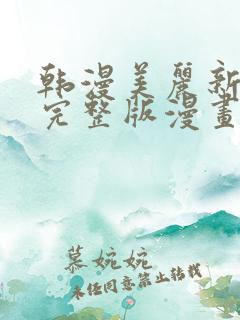 韩漫美麗新
完整版漫畫
慕婉婉
未经同意禁止转载